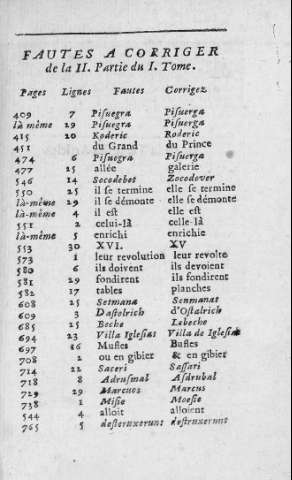 FAUTES A CORRIGER
de la II. Partie du I. Tome.
Pages Lignes Fautes Corrigez
409 7 Pisuegra Pisuerga
là même 29 Pisuegra Pisuerga
415 20 Koderic Roderic
451 du Grand du Prince
474 6 Pisuegra Pisuerga
477 25 allée galerie
546 14 Socodebet Zocodover
550 25 il se termine elle se termine
là-même 29 il se démonte elle se démonte
là-même 4 il est elle est
551 2 celui-là celle-là
là-même 5 enrichi enrichie
553 30 XVI. XV
573 1 leur revolution leur revolte
580 6 ils doivent ils devoient
581 29 fondirent ils fondirent
582 17 tables planches
608 25 Setmana Senmanat
609 3 Dastolrich d'Ostalrich
685 25 Beche Lebeche
694 23 Villa Iglesias Villa de Iglesias
697 16 Musles Bufles
708 2 ou en gibier & en gibier
714 22 Saceri Sassari
718 8 Adrusmal Asdrubal
729 29 Marcuos Marcus
738 1 Misie Moesie
544 4 alloit alloient
765 5 desteruxerunt destruxerunt